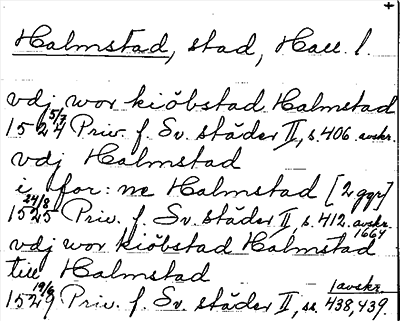 Halmstad, stad, Hall. l.
vdj wor kiöbstad Halmstad
1524 5/7 Priv. f. Sv. städer II, s. 406. avskr.
vdj Halmstad
i for: ne Halmstad [2 ggr]
1525 24/8 Priv. f. Sv. städer II, s. 412. avskr. 1664
vdj wor kiöbstad Halmstad
till Halmstad
1529 19/6 Priv. f. Sv. städer II, ss. 438, 439. 1 avskr.